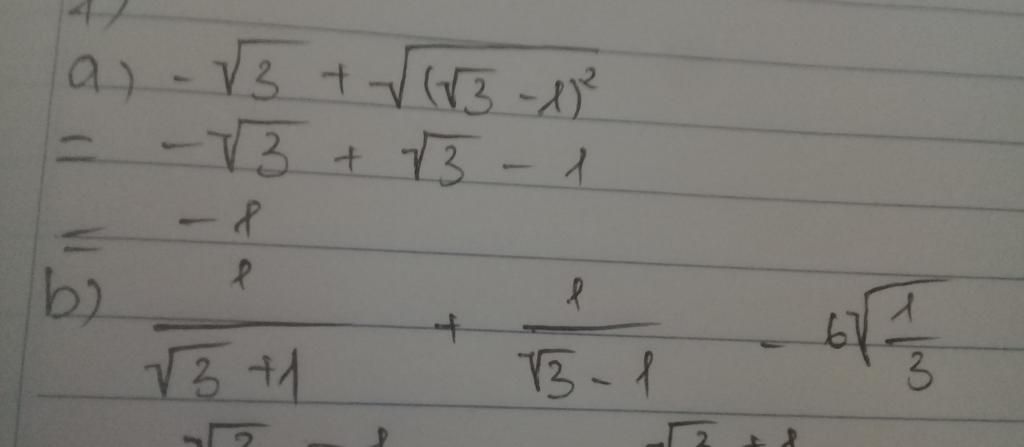 a) - √3 + √(√3 - 1)²
= - √3 + √3 - 1
= - 1
b) 1/(√3 + 1) + 1/(√3 - 1) - 6√(1/3)